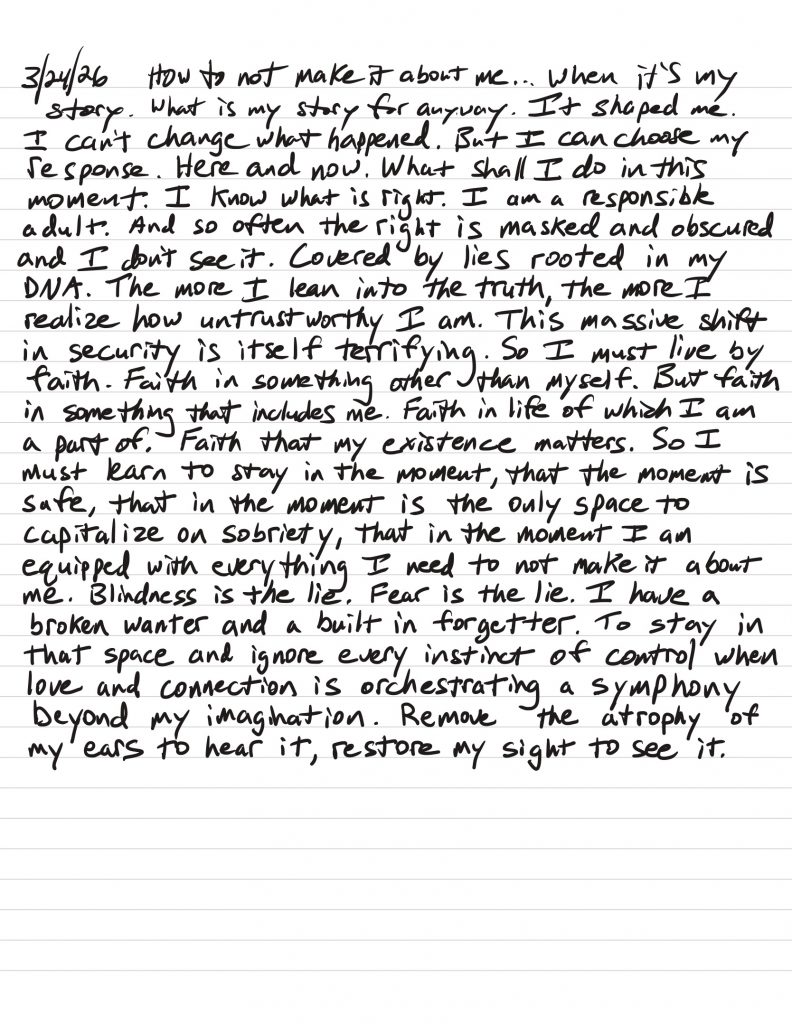 3/24/26 How to not make it about me... when it's my
story. What is my story for anyway. It shaped me.
I can't change what happened. But I can choose my
response. Here and now. What shall I do in this
moment. I know what is right. I am a responsible
adult. And so often the right is masked and obscured
and I don't see it. Covered by lies rooted in my
DNA. The more I lean into the truth, the more I
realize how untrustworthy I am. This massive shift
in security is itself terrifying. So I must live by
faith. Faith in something other than myself. But faith
in something that includes me. Faith in life of which I am
a part of. Faith that my existence matters. So I
must learn to stay in the moment, that the moment is
safe, that in the moment is the only space to
capitalize on sobriety, that in the moment I am
equipped with everything I need to not make it about
me. Blindness is the lie. Fear is the lie. I have a
broken wanter and a built in forgetter. To stay in
that space and ignore every instinct of control when
love and connection is orchestrating a symphony
beyond my imagination. Remove the atrophy of
my ears to hear it, restore my sight to see it.